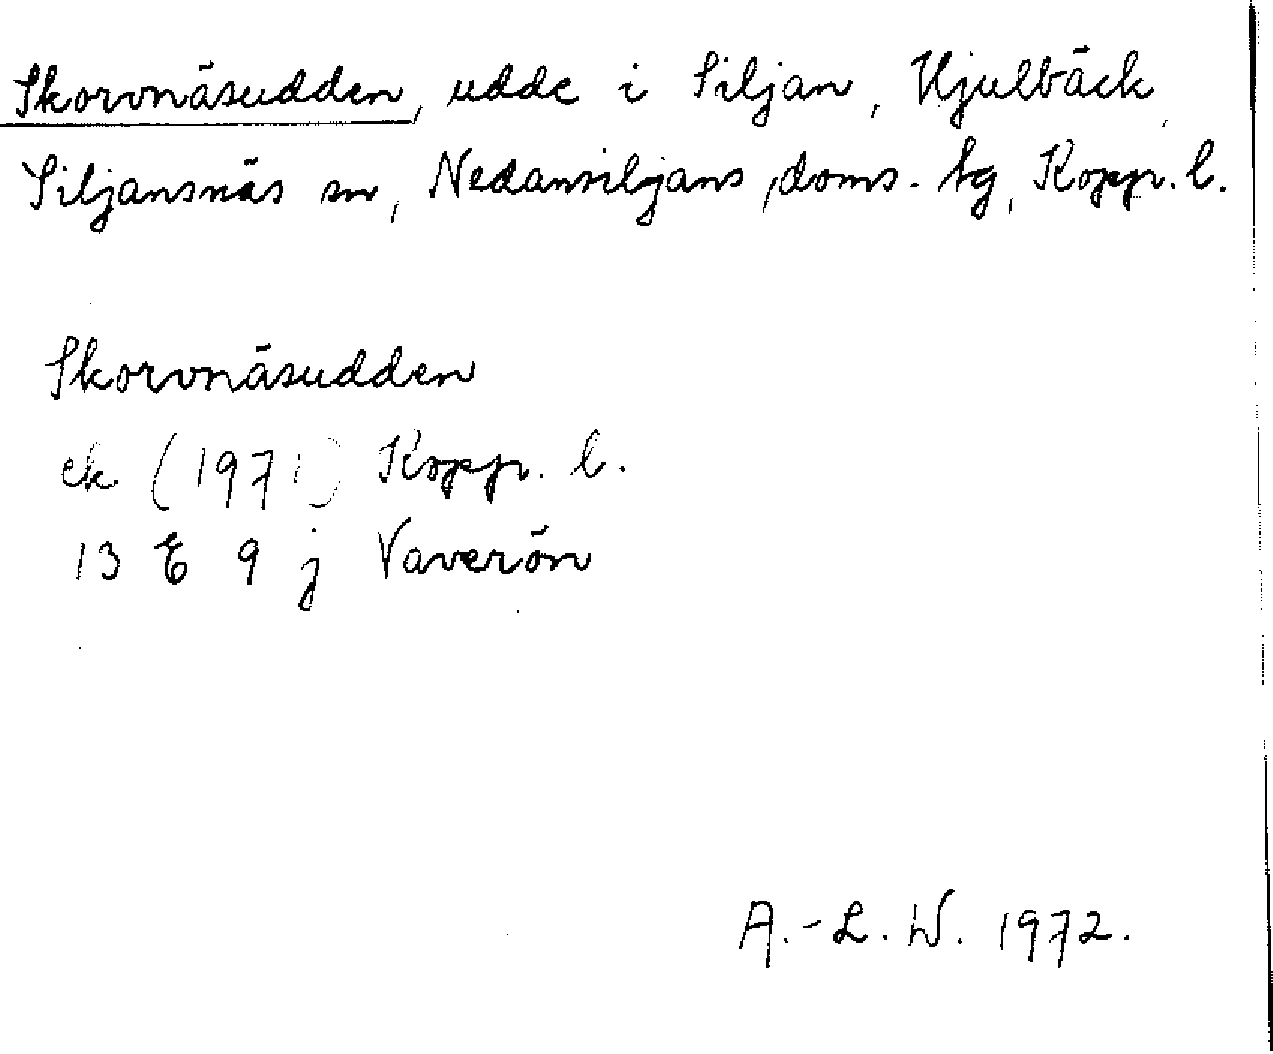 Skorvnäsudden, udde i Siljan, Hjulbäck,
Siljansnäs sn, Nedansiljans doms. tg, Kopp. l.
Skorvnäsudden
ek (1971) Kopp. l.
13 E 9 j Vaverön
A.-L. W. 1972.